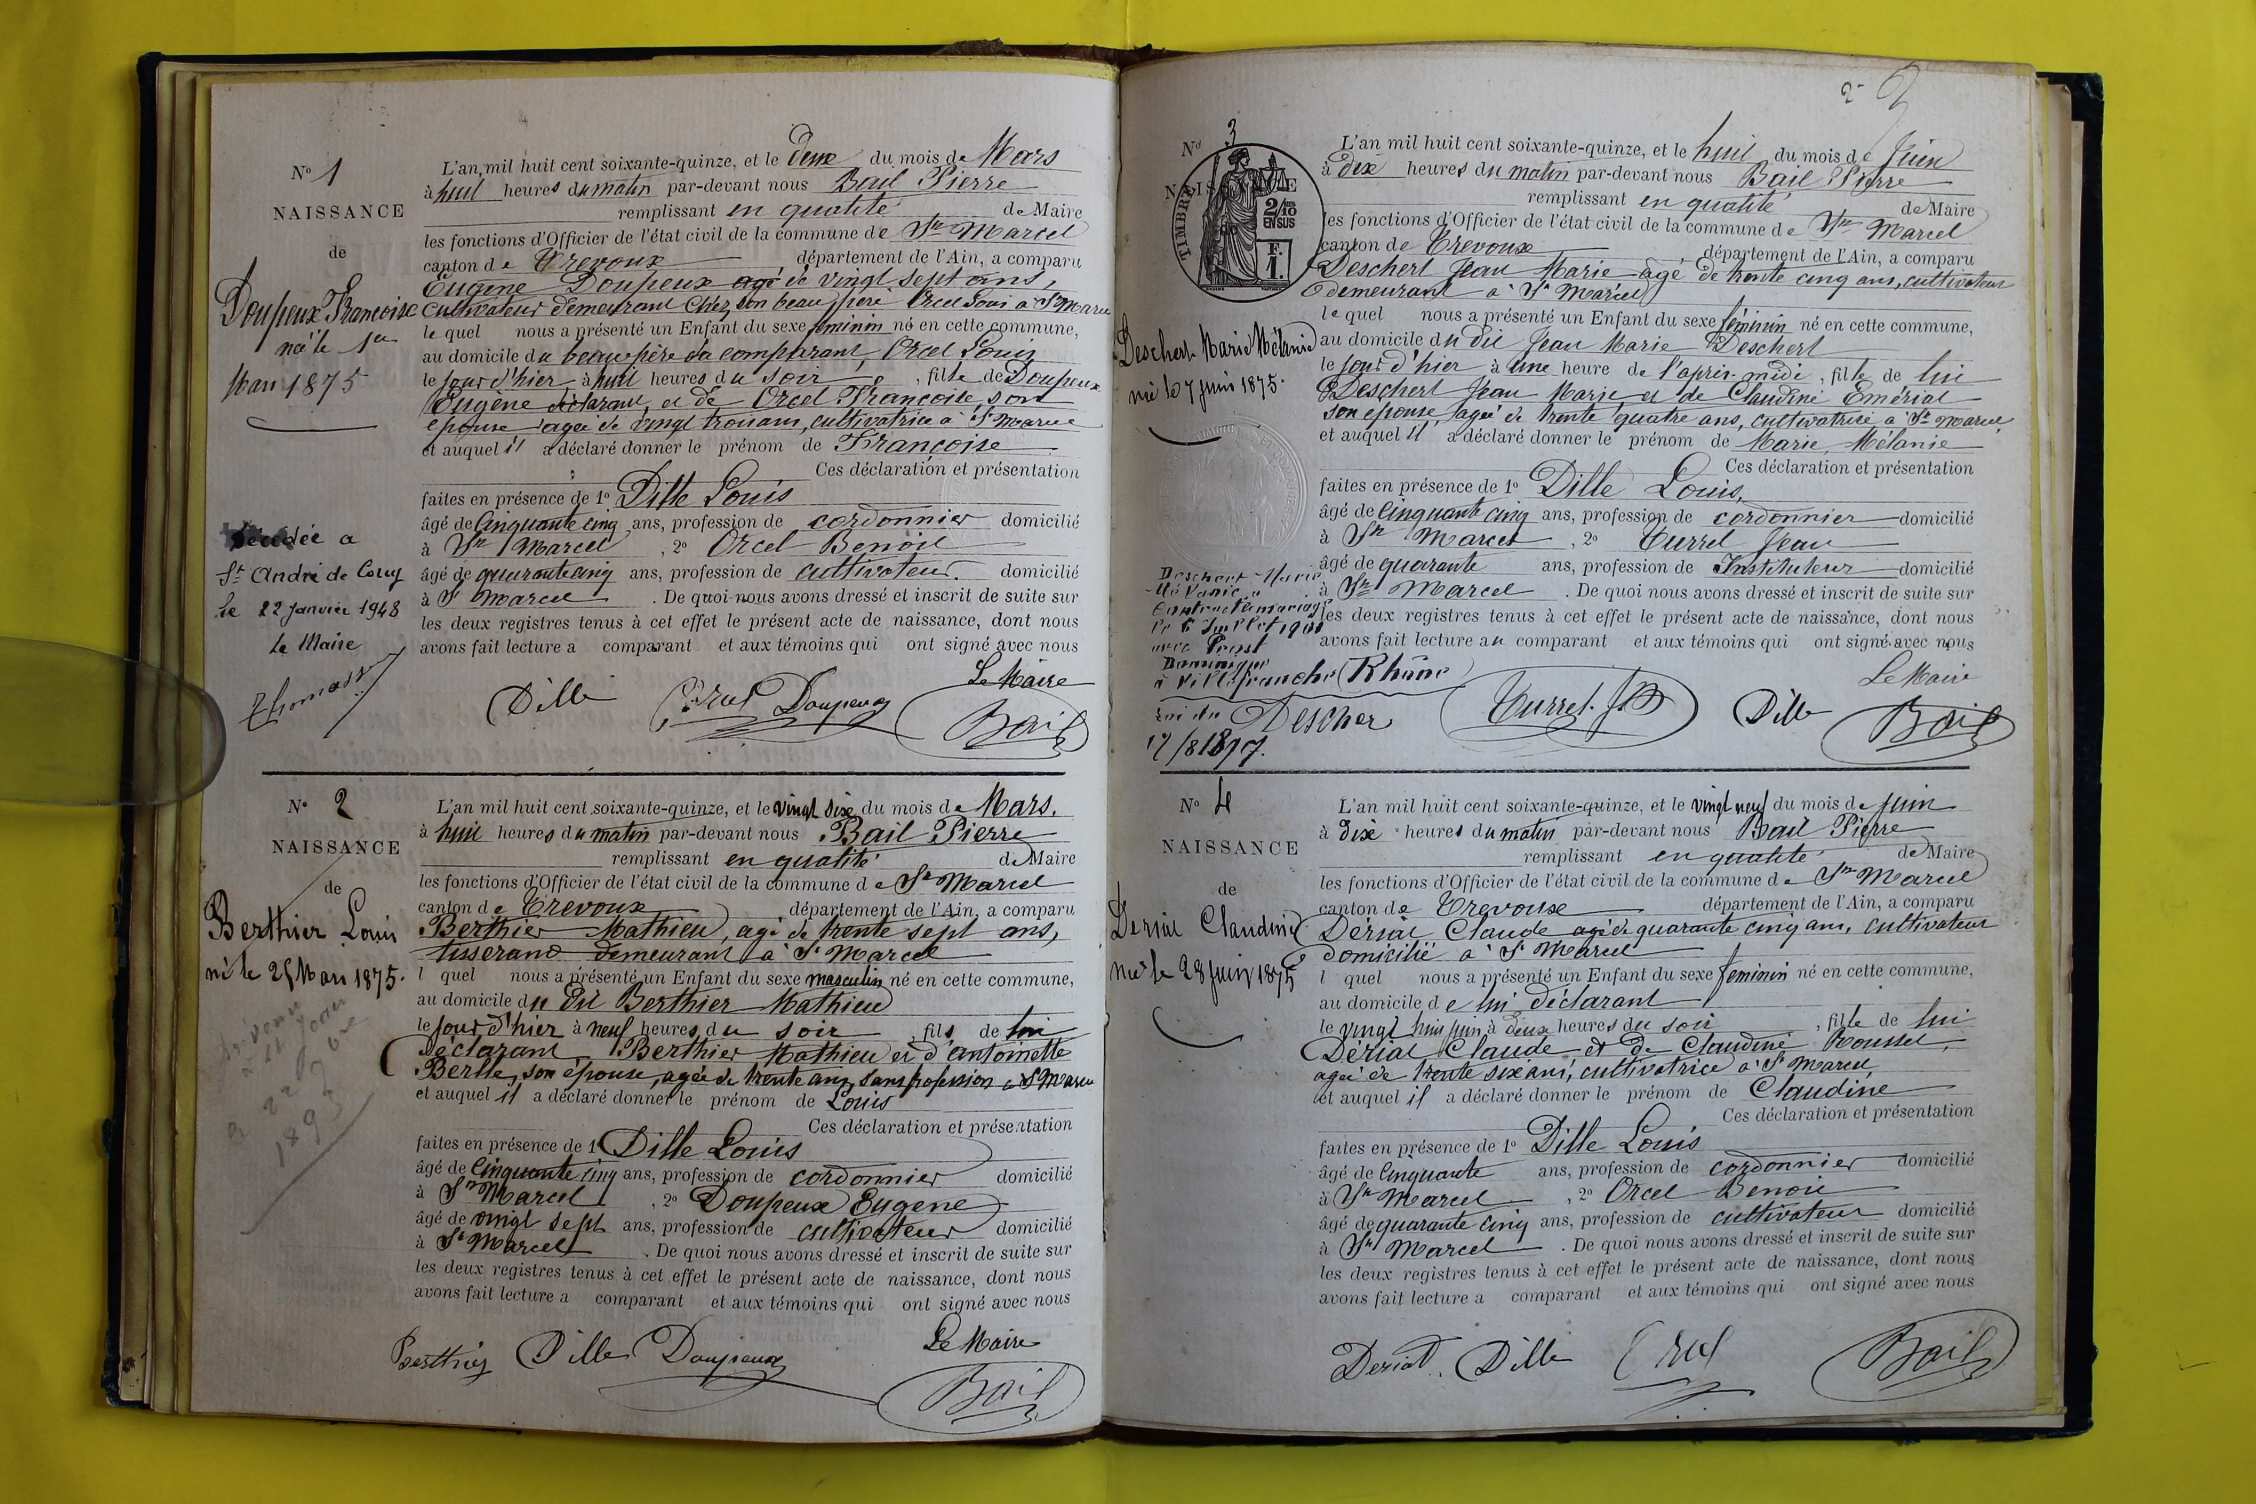 N° 1
NAISSANCE
de
Doupeux Françoise
née le 1er
Mars 1875
Décédée a
St André de Corcy
le 22 Janvier 1948
Le Maire
L'an mil huit cent soixante-quinze, et le deux du mois de Mars
à huit heures du matin par-devant nous Bail Pierre
remplissant en qualité de Maire
les fonctions d'Officier de l'état civil de la commune de St Marcel
canton de Trevoux département de l'Ain, a comparu
Eugène Doupeux agé de vingt sept ans,
cultivateur demeurant chez son beau père Orcel Louis a St Marcel
le quel nous a présenté un Enfant du sexe féminin né en cette commune,
au domicile du beau père du comparant, Orcel Louis
le jour d'hier à huit heures du soir, fille de Doupeux
Eugène déclarant, et de Orcel Françoise, son
épouse agée de vingt trois ans, cultivatrice à St Marcel
et auquel il a déclaré donner le prénom de Françoise
Ces déclaration et présentation
faites en présence de 1° Dille Louis
âgé de Cinquante cinq ans, profession de cordonnier domicilié
à St Marcel, 2° Orcel Benoit
âgé de quarante cinq ans, profession de cultivateur domicilié
à St Marcel. De quoi nous avons dressé et inscrit de suite sur
les deux registres tenus à cet effet le présent acte de naissance, dont nous
avons fait lecture a comparant et aux témoins qui ont signé avec nous
Le Maire
Dille Orcel Doupeux Bail
N° 2
NAISSANCE
de
Berthier Louis
né le 25 Mars 1875.
1893
L'an mil huit cent soixante-quinze, et le vingt six du mois de Mars.
à huit heures du matin par-devant nous Bail Pierre
remplissant en qualité de Maire
les fonctions d'Officier de l'état civil de la commune de St Marcel
canton de Trevoux département de l'Ain, a comparu
Berthier Mathieu, agé de trente sept ans,
tisserand demeurant à St Marcel
l quel nous a présenté un Enfant du sexe masculin né en cette commune,
au domicile du dit Berthier Mathieu
le jour d'hier à neuf heures du soir, fils de lui
déclarant Berthier Mathieu et d'antoinette
Berlie, son épouse, agée de trente ans, sans profession a St Marcel
et auquel il a déclaré donner le prénom de Louis
Ces déclaration et présentation
faites en présence de 1° Dille Louis
âgé de Cinquante cinq ans, profession de cordonnier domicilié
à St Marcel, 2° Doupeux Eugene
âgé de vingt sept ans, profession de cultivateur domicilié
à St Marcel. De quoi nous avons dressé et inscrit de suite sur
les deux registres tenus à cet effet le présent acte de naissance, dont nous
avons fait lecture a comparant et aux témoins qui ont signé avec nous
Le Maire
Berthier Dille Doupeux Bail
2
N° 3
TIMBRE
2/10
EN SUS
F.
1.
Deschert Marie Mélanie
née le 7 juin 1875.
Deschert Marie
Mélanie
Contracté mariage
avec
à Villefranche (Rhône)
L'an mil huit cent soixante-quinze, et le huit du mois de Juin
à dix heures du matin par-devant nous Bail Pierre
remplissant en qualité de Maire
les fonctions d'Officier de l'état civil de la commune de St Marcel
canton de Trevoux département de l'Ain, a comparu
Deschert Jean Marie agé de trente cinq ans, cultivateur
demeurant a St Marcel
le quel nous a présenté un Enfant du sexe féminin né en cette commune,
au domicile du dit Jean Marie Deschert
le jour d'hier à une heure de l'après midi, fille de lui
Deschert Jean Marie et de Claudine Émérial
son épouse, agée de trente quatre ans, cultivatrice a St Marcel
et auquel il a déclaré donner le prénom de Marie Mélanie
Ces déclaration et présentation
faites en présence de 1° Dille Louis,
âgé de Cinquante cinq ans, profession de cordonnier domicilié
à St Marcel, 2° Turrel Jean
âgé de quarante ans, profession de Instituteur domicilié
à St Marcel. De quoi nous avons dressé et inscrit de suite sur
les deux registres tenus à cet effet le présent acte de naissance, dont nous
avons fait lecture au comparant et aux témoins qui ont signé avec nous
Le Maire
Descher Turrel Dille Bail
N° 4
NAISSANCE
de
Dériat Claudine
née le 28 juin 1875
L'an mil huit cent soixante-quinze, et le vingt neuf du mois de juin
à dix heures du matin par-devant nous Bail Pierre
remplissant en qualité de Maire
les fonctions d'Officier de l'état civil de la commune de St Marcel
canton de Trevoux département de l'Ain, a comparu
Dériat Claude agé de quarante cinq ans, cultivateur
domicilié a St Marcel
l quel nous a présenté un Enfant du sexe féminin né en cette commune,
au domicile de lui déclarant
le vingt huit juin à deux heures du soir, fille de lui
Dériat Claude et de Claudine Roussel,
agée de trente six ans, cultivatrice a St Marcel
et auquel il a déclaré donner le prénom de Claudine
Ces déclaration et présentation
faites en présence de 1° Dille Louis
âgé de Cinquante ans, profession de cordonnier domicilié
à St Marcel, 2° Orcel Benoit
âgé de quarante cinq ans, profession de cultivateur domicilié
à St Marcel. De quoi nous avons dressé et inscrit de suite sur
les deux registres tenus à cet effet le présent acte de naissance, dont nous
avons fait lecture a comparant et aux témoins qui ont signé avec nous
Deriat Dille Orcel Bail